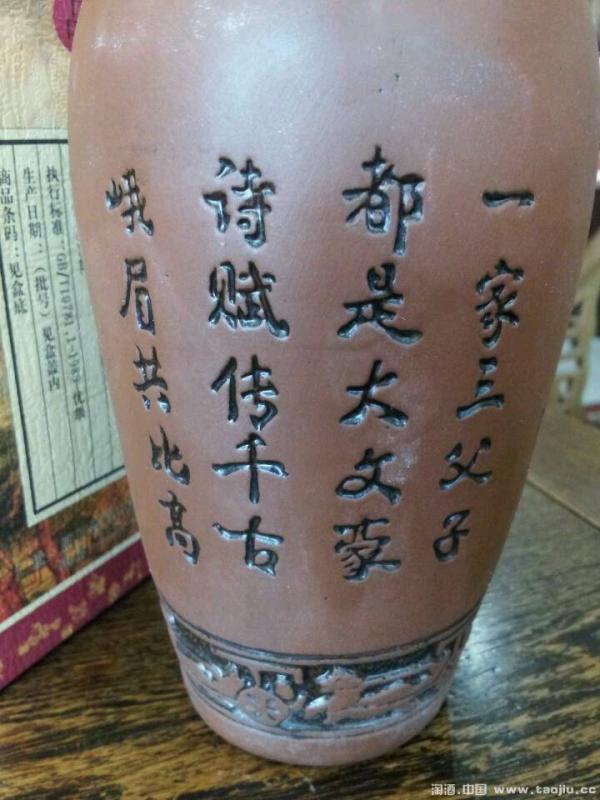 一家三父子
都是大文豪
诗赋传千古
峨眉共比高
执行标准:GB/T10781.1-1989 优级
生产日期:(批号)见盒盖内
商品条码:见盒底
淘酒.中国 www.taojiu.cc